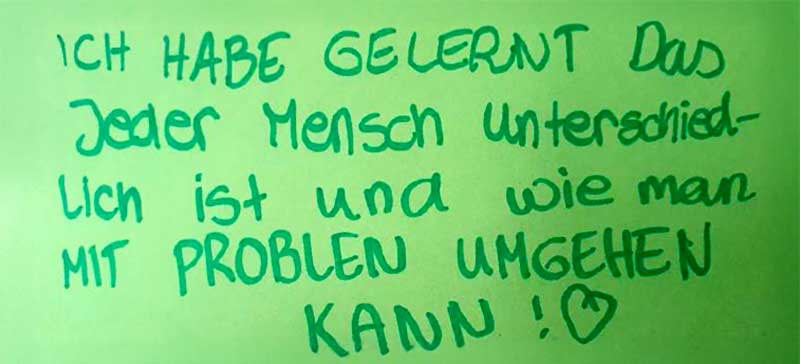 ICH HABE GELERNT DAS
Jeder Mensch unterschied-
lich ist und wie man
MIT PROBLEN UMGEHEN
KANN ! ♡